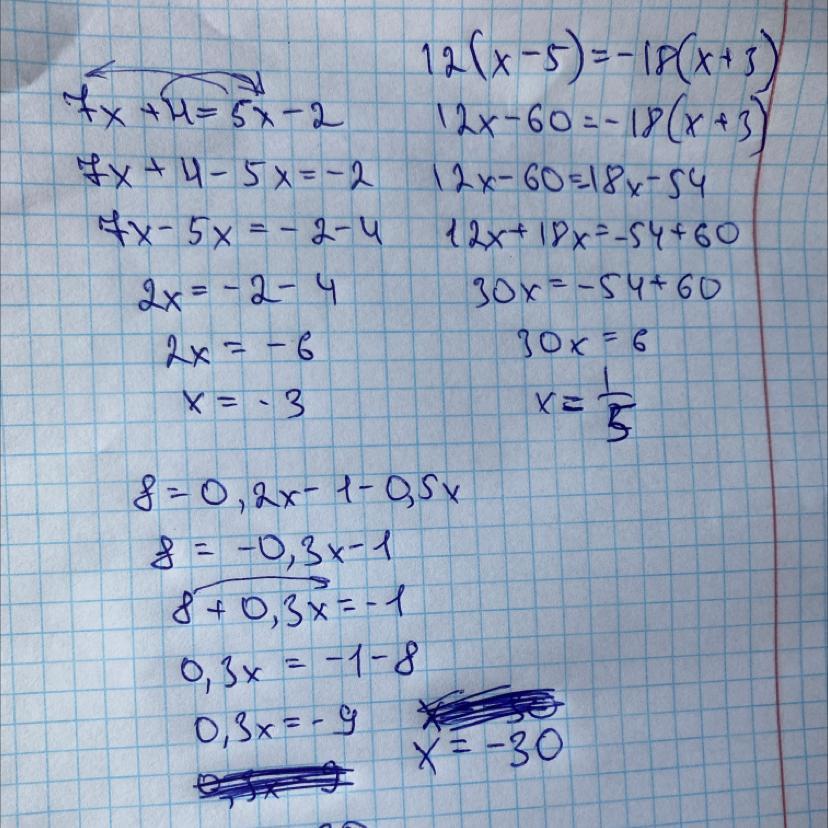 7x + 4 = 5x - 2
7x + 4 - 5x = -2
7x - 5x = -2 - 4
2x = -2 - 4
2x = -6
x = -3
12(x - 5) = -18(x + 3)
12x - 60 = -18(x + 3)
12x - 60 = 18x - 54
12x + 18x = -54 + 60
30x = -54 + 60
30x = 6
x = 1/5
8 = 0,2x - 1 - 0,5x
8 = -0,3x - 1
8 + 0,3x = -1
0,3x = -1 - 8
0,3x = -9
x = -30